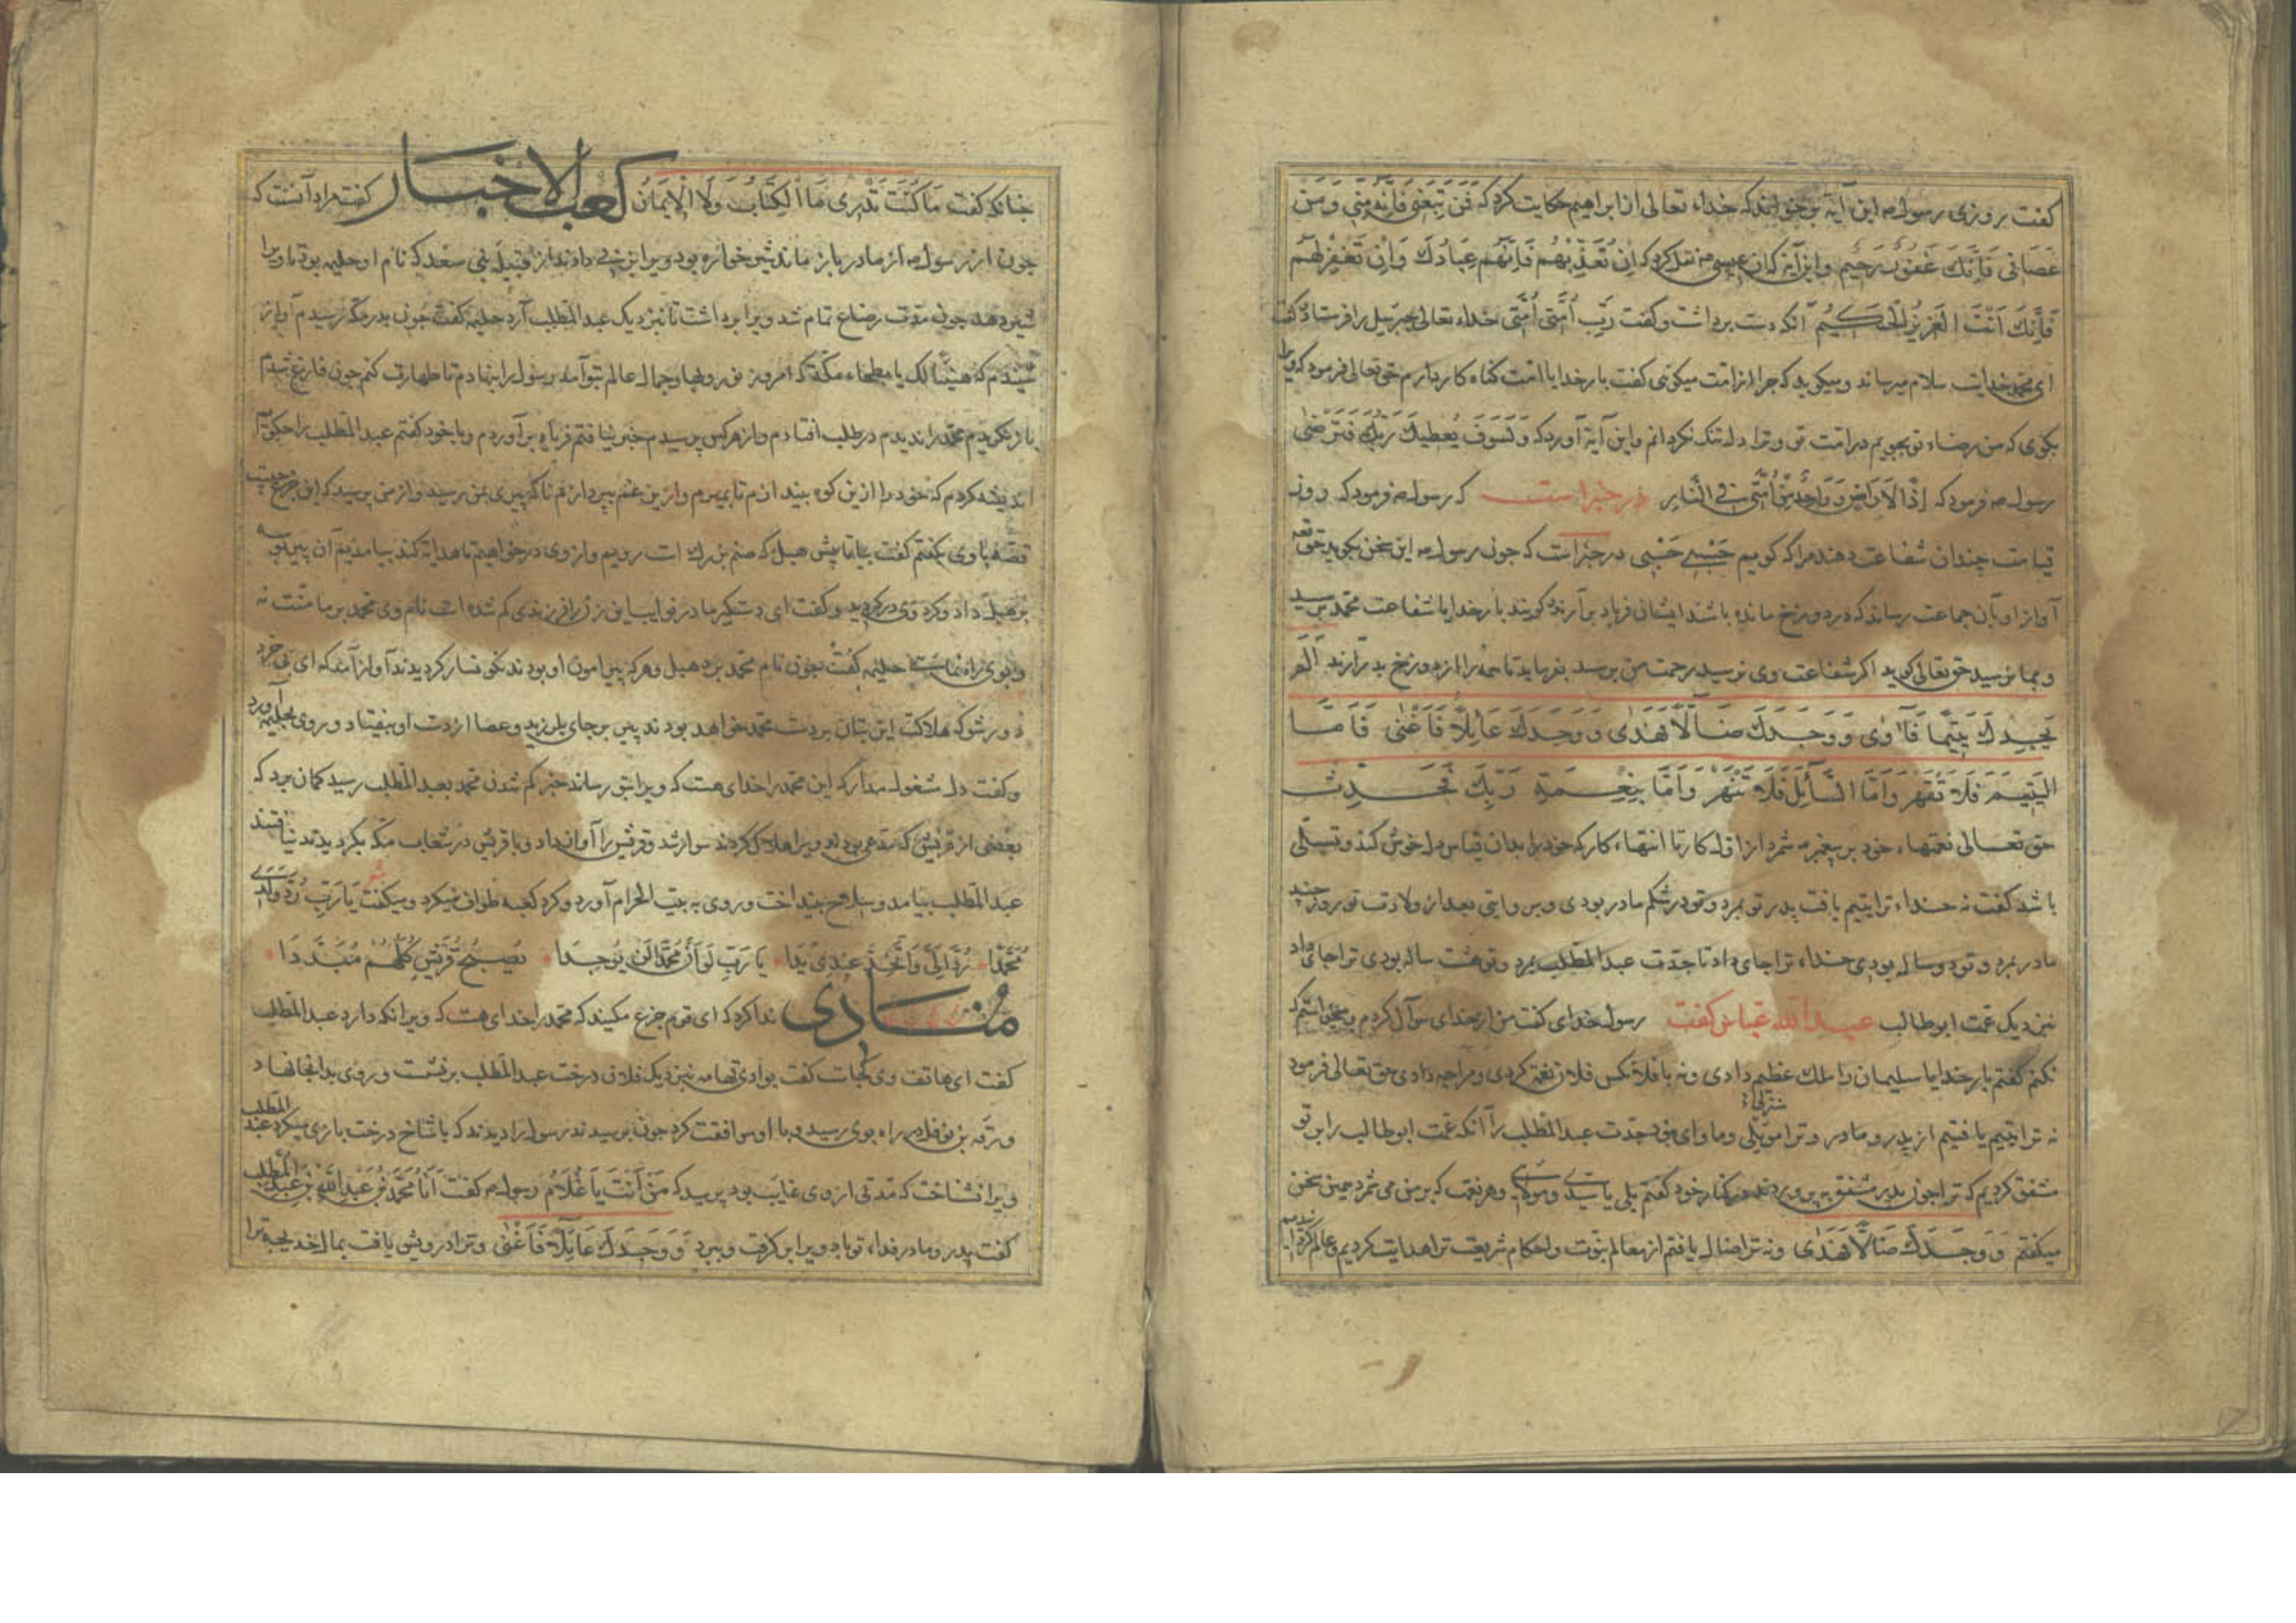 کفت روزی رسول ص این آیة بر خواند که خداء تعالی از ابراهیم حکایت کرد که فَمَنْ تَبِعَنِی فَإِنَّهُ مِنِّی وَمَنْ
عَصَانِی فَإِنَّكَ غَفُورٌ رَحِیم واین آیة که از عیسی نقل کرد که اِنْ تُعَذِّبْهُم فَاِنَّهُم عِبَادُكَ وَاِنْ تَغْفِرْ لَهُم
فَاِنَّكَ اَنْتَ الْعَزِیزُ الْحَکِیُم آنکه دست برداشت وکفت رَبِّ اُمَّتی اُمَّتی خداء تعالی جبرئیل را فرستاد وکفت
ای محمد خدایت سلام میرساند ومیکوید که چرا از امت میکوئی کفت بار خدایا امت کناه کار دارم حق تعالی فرمود که ویرا
بکوی که من رضاء تو بجویم در امت تو وترا دل تنک نکردانم واین آیة آورد که وَلَسَوفَ یُعطِیكَ رَبُّكَ فَتَرْضَی
رسول ص فرمود که اِذًا لَا اَرْضَی وَوَاحِدٌ مِنْ اُمَّتِی فِی النَّارِ در خبر است که رسول ص فرمود که روز
قیامت چندان شفاعت دهند مرا که کویم حَسْبِی حَسْبِی در خبر است که چون رسول ص این سخن بکوید حق تع
آواز او بآن جماعت رساند که در دوزخ مانده باشند ایشان فریاد برآرند کویند بار خدایا شفاعت محمد برسید
وبما نرسید حق تعالی کوید اکر شفاعت وی نرسید رحمت من برسد بفرماید تا همه را از دوزخ بدر آرند اَلَمْ
یَجِدْكَ یَتِیمًا فَآوٰی وَوَجَدَكَ ضَالًّا فَهَدٰی وَوَجَدَكَ عَائِلًا فَاَغْنٰی فَاَمَّا
الیَتِیمَ فَلَا تَقْهَرْ وَاَمَّا السَّائِلَ فَلَا تَنْهَرْ وَاَمَّا بِنِعْمَةِ رَبِّكَ فَحَدِّثْ
حق تعالی نعمتهاء خود بر پیغمبر ص شمرد از اول کار تا انتهاء کار که خود را بدان قیاس دل خوش کند وتسلی
باشد کفت نه خداء ترا یتیم یافت پدر تو بمرد وتو در شکم مادر بودی وبروایتی بعد از ولادت تو روزی چند
مادر بمرد وتو دو ساله بودی خداء ترا جای داد تا جدت عبد المطلب بمرد وتو هشت ساله بودی ترا جای داد
نزدیک عمت ابو طالب عبد الله عباس کفت رسول خدای کفت من از خدای سوآل کردم ومیخواستم که
نکنم کفتم بار خدایا سلیمان را ملك عظیم دادی ونه با فلانکس فلان نعمت کردی ومرا چه دادی حق تعالی فرمود
نه ترا یتیم یافتیم از پدر ومادر وترا موئلی وماوای نبود جدت عبد المطلب را آنکه عمت ابو طالب را بر تو
مشفق کردیم که ترا چون پدر مشفق پروردند در کنار خود کفتم بلی یا سَیِّدِی وَمَوْلَایَ وهر نعمت که بر من می شمرد همین سخن
میکفتم وَوَجَدَكَ ضَالًّا فَهَدٰی ونه ترا ضال یافتم از معالم نبوت واحکام شریعت ترا هدایت کردیم وعالم کردانیدیم
چنانکه کفت مَا کُنْتَ تَدْرِی مَا الْکِتَابُ وَلَا الْاِیمَانُ کعب الاخبار کفت مراد آنست که
چون رسول ص از مادر باز ماند شیر خواره بود ویرا بزنی دادند از قبیله بنی سعد که نام او حلیمه بود تا ویرا
شیر دهد چون مدت رضاع تمام شد ویرا برداشت تا بنزدیک عبد المطلب آرد حلیمه کفت چون بدر مکه رسیدم آواز
شنیدم که هَنِیئًا لك یا بطحاء مکة که امروز نور وبهاء وجمال عالم بتو آمد رسول را بنهادم تا طهارت کنم چون فارغ شدم
باز نکریدم محمد را ندیدم در طلب افتادم واز هر کس پرسیدم خبر نیافتم فریاد برآوردم وبا خود کفتم عبد المطلب را چکویم
اندیشه کردم که خود را از این کوه بیندازم تا بمیرم واز این غم بپردازم ناکه پیری بمن رسید واز من پرسید که این جزع چیست
قصه با وی بکفتم کفت بیا تا پیش هبل که صنم بزرك است رویم واز وی درخواهیم تا هدایة کند بیامدیم آن پیر بوسه
بر هبل داد وکرد وی در کردید وکفت ای دستکیر ما در فریاد این زن را فرزندی کم شده است نام وی محمد بر ما منت نه
وبوی راه نمای حلیمه کفت چون نام محمد برد هبل وهر که پیرامون او بودند نکونسار کردیدند آواز آمد که ای بی خرد
دور شو که هلاکت این بتان بر دست محمد خواهد بود پیر بر جای بلرزید وعصا از دست او بیفتاد وروی بحلیمه آورد
وکفت دل مشغول مدار که این محمد را خدای هست که ویرا بتو رساند خبر کم شدن محمد بعبد المطلب رسید کمان برد که
بعضی از قریش که مدعی بودند ویرا هلاك کردند سوار شد وقریش را آواز داد وبا قریش در شعاب مکه بکردیدند نیافتند
عبد المطلب بیامد وسلاح بینداخت وروی به بیت الحرام آورد وکرد کعبه طواف میکرد ومیکفت شعر یَا رَبِّ رُدَّ وَلَدِی
مُحَمَّدًا رُدَّ اِلَیَّ وَاتَّخِذْ عِنْدِی یَدَا یَا رَبِّ لَوْ اَنَّ مُحَمَّدًا لَنْ یُوجَدَا تُصْبِحُ قُرَیْشٌ کُلُّهُمْ مُبَدَّدَا
مُنَادی ندا کرد که ای قوم جزع مکنید که محمد را خدای هست که ویرا نکه دارد عبد المطلب
کفت ای هاتف وی کجاست کفت بوادی تهامه نزدیک فلان درخت عبد المطلب برنشست وروی بدانجا نهاد
ورقة بن نوفل در راه بوی رسید وبا او موافقت کرد چون برسیدند رسول را دیدند که با شاخ درخت بازی میکرد عبد المطلب
ویرا نشناخت که مدتی از وی غایب بود پرسید که مَنْ اَنْتَ یَا غُلَامُ رسول ص کفت اَنَا مُحَمَّدُ بْنُ عَبْدِ اللّٰهِ بْنِ عَبْدِ الْمُطَّلِبِ
کفت پدر ومادر فداء تو باد ویرا برکرفت وببرد وَوَجَدَكَ عَائِلًا فَاَغْنٰی وترا درویش یافت بمال خدیجة ترا